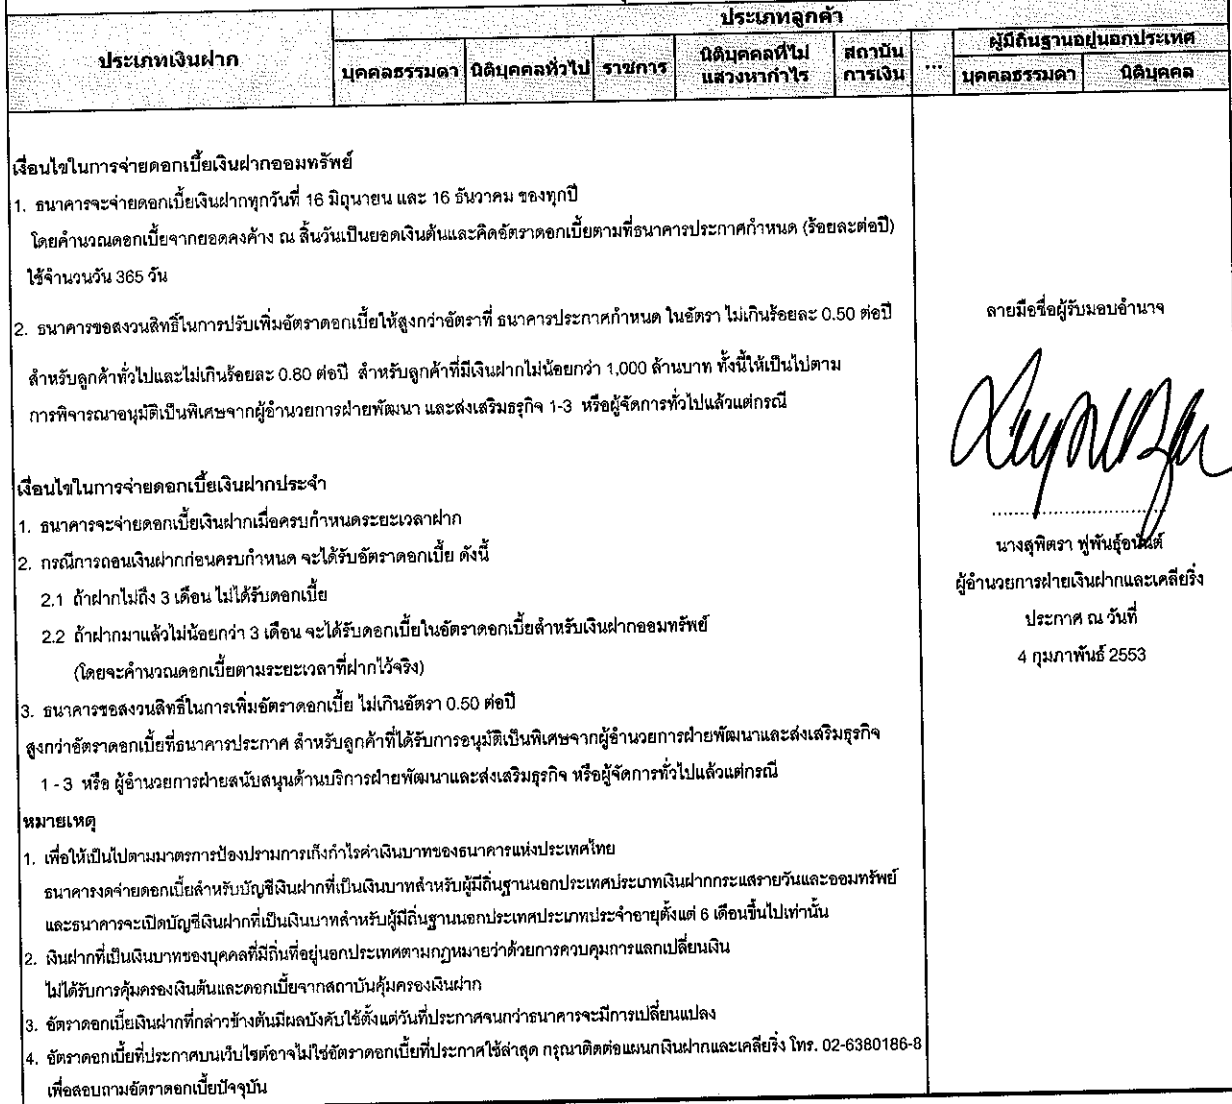 ประเภทลูกค้า
ประเภทเงินฝาก
บุคคลธรรมดา นิติบุคคลทั่วไป ราชการ นิติบุคคลที่ไม่แสวงหากำไร สถาบันการเงิน ... ผู้มีถิ่นฐานอยู่นอกประเทศ
บุคคลธรรมดา นิติบุคคล
เงื่อนไขในการจ่ายดอกเบี้ยเงินฝากออมทรัพย์
1. ธนาคารจะจ่ายดอกเบี้ยเงินฝากทุกวันที่ 16 มิถุนายน และ 16 ธันวาคม ของทุกปี
โดยคำนวณดอกเบี้ยจากยอดคงค้าง ณ สิ้นวันเป็นยอดเงินต้นและคิดอัตราดอกเบี้ยตามที่ธนาคารประกาศกำหนด (ร้อยละต่อปี)
ใช้จำนวนวัน 365 วัน
2. ธนาคารขอสงวนสิทธิ์ในการปรับเพิ่มอัตราดอกเบี้ยให้สูงกว่าอัตราที่ ธนาคารประกาศกำหนด ในอัตรา ไม่เกินร้อยละ 0.50 ต่อปี
สำหรับลูกค้าทั่วไปและไม่เกินร้อยละ 0.80 ต่อปี สำหรับลูกค้าที่มีเงินฝากไม่น้อยกว่า 1,000 ล้านบาท ทั้งนี้ให้เป็นไปตาม
การพิจารณาอนุมัติเป็นพิเศษจากผู้อำนวยการฝ่ายพัฒนา และส่งเสริมธุรกิจ 1-3 หรือผู้จัดการทั่วไปแล้วแต่กรณี
เงื่อนไขในการจ่ายดอกเบี้ยเงินฝากประจำ
1. ธนาคารจะจ่ายดอกเบี้ยเงินฝากเมื่อครบกำหนดระยะเวลาฝาก
2. กรณีการถอนเงินฝากก่อนครบกำหนด จะได้รับอัตราดอกเบี้ย ดังนี้
2.1 ถ้าฝากไม่ถึง 3 เดือน ไม่ได้รับดอกเบี้ย
2.2 ถ้าฝากมาแล้วไม่น้อยกว่า 3 เดือน จะได้รับดอกเบี้ยในอัตราดอกเบี้ยสำหรับเงินฝากออมทรัพย์
(โดยจะคำนวณดอกเบี้ยตามระยะเวลาที่ฝากไว้จริง)
3. ธนาคารขอสงวนสิทธิ์ในการเพิ่มอัตราดอกเบี้ย ไม่เกินอัตรา 0.50 ต่อปี
สูงกว่าอัตราดอกเบี้ยที่ธนาคารประกาศ สำหรับลูกค้าที่ได้รับการอนุมัติเป็นพิเศษจากผู้อำนวยการฝ่ายพัฒนาและส่งเสริมธุรกิจ
1 - 3 หรือ ผู้อำนวยการฝ่ายสนับสนุนด้านบริการฝ่ายพัฒนาและส่งเสริมธุรกิจ หรือผู้จัดการทั่วไปแล้วแต่กรณี
หมายเหตุ
1. เพื่อให้เป็นไปตามมาตรการป้องปรามการเก็งกำไรค่าเงินบาทของธนาคารแห่งประเทศไทย
ธนาคารงดจ่ายดอกเบี้ยสำหรับบัญชีเงินฝากที่เป็นเงินบาทสำหรับผู้มีถิ่นฐานนอกประเทศประเภทเงินฝากกระแสรายวันและออมทรัพย์
และธนาคารจะเปิดบัญชีเงินฝากที่เป็นเงินบาทสำหรับผู้มีถิ่นฐานนอกประเทศประเภทประจำอายุตั้งแต่ 6 เดือนขึ้นไปเท่านั้น
2. เงินฝากที่เป็นเงินบาทของบุคคลที่มีถิ่นที่อยู่นอกประเทศตามกฎหมายว่าด้วยการควบคุมการแลกเปลี่ยนเงิน
ไม่ได้รับการคุ้มครองเงินต้นและดอกเบี้ยจากสถาบันคุ้มครองเงินฝาก
3. อัตราดอกเบี้ยเงินฝากที่กล่าวข้างต้นมีผลบังคับใช้ตั้งแต่วันที่ประกาศจนกว่าธนาคารจะมีการเปลี่ยนแปลง
4. อัตราดอกเบี้ยที่ประกาศบนเว็บไซต์อาจไม่ใช่อัตราดอกเบี้ยที่ประกาศใช้ล่าสุด กรุณาติดต่อแผนกเงินฝากและเคลียริ่ง โทร. 02-6380186-8
เพื่อสอบถามอัตราดอกเบี้ยปัจจุบัน
ลายมือชื่อผู้รับมอบอำนาจ
นางสุพิตรา ฟูพันธุ์อนันต์
ผู้อำนวยการฝ่ายเงินฝากและเคลียริ่ง
ประกาศ ณ วันที่
4 กุมภาพันธ์ 2553